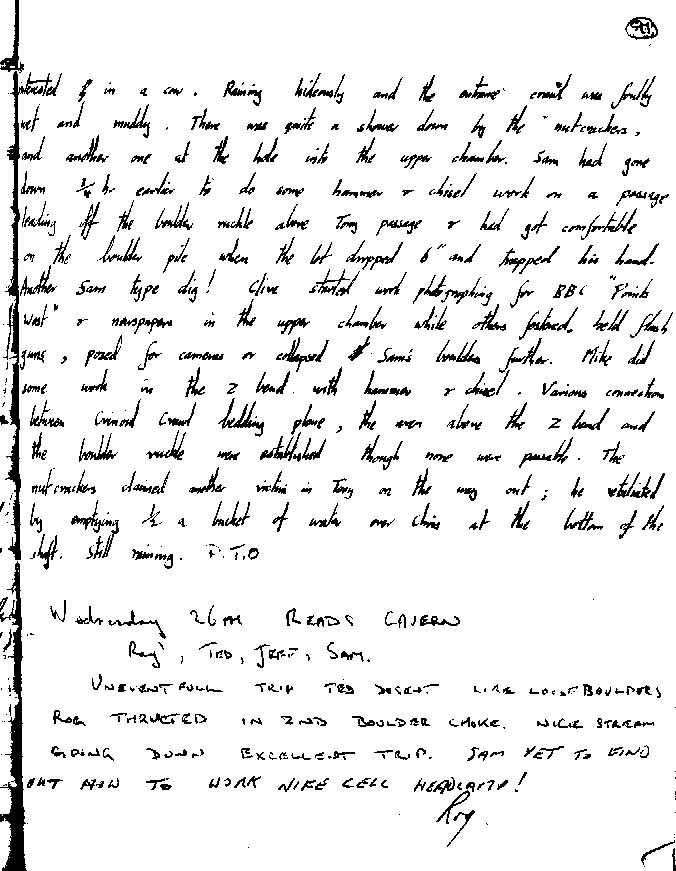 interested in a cow. Raining hideously and the entrance crawl was foully
wet and muddy. There was quite a shower down by the "nutcrackers,
and another one at the hole into the upper chamber. Sam had gone
down 3/4 hr earlier to do some hammer & chisel work on a passage
leading off the boulder ruckle above Tony passage & had got comfortable
on the boulder pile when the lot dropped 6" and trapped his hand.
Another Sam type dig! Clive started work photographing for BBC "Points
West" & newspapers in the upper chamber while others held flash
guns, posed for cameras or collapsed Sam's boulders further. Mike did
some work in the Z bend with hammer & chisel. Various connection
between Crinoid Crawl bedding plane, the aven above the Z bend and
the boulder ruckle were established though none were passable. The
nutcrackers claimed another victim in Tony on the way out; he retaliated
by emptying 1/2 a bucket of water over Chris at the bottom of the
shaft. Still raining. P.T.O
Wednesday 26TH READS CAVERN
Roy, TED, JEFF, SAM.
UNEVENTFULL TRIP TED DOSENT LIKE LOOSE BOULDERS
ROG THRUTED IN 2ND BOULDER CHOKE. NICE STREAM
GOING DOWN EXCELLENT TRIP. SAM YET TO FIND
OUT HOW TO WORK NIFE CELL HEADLAMP!
Roy